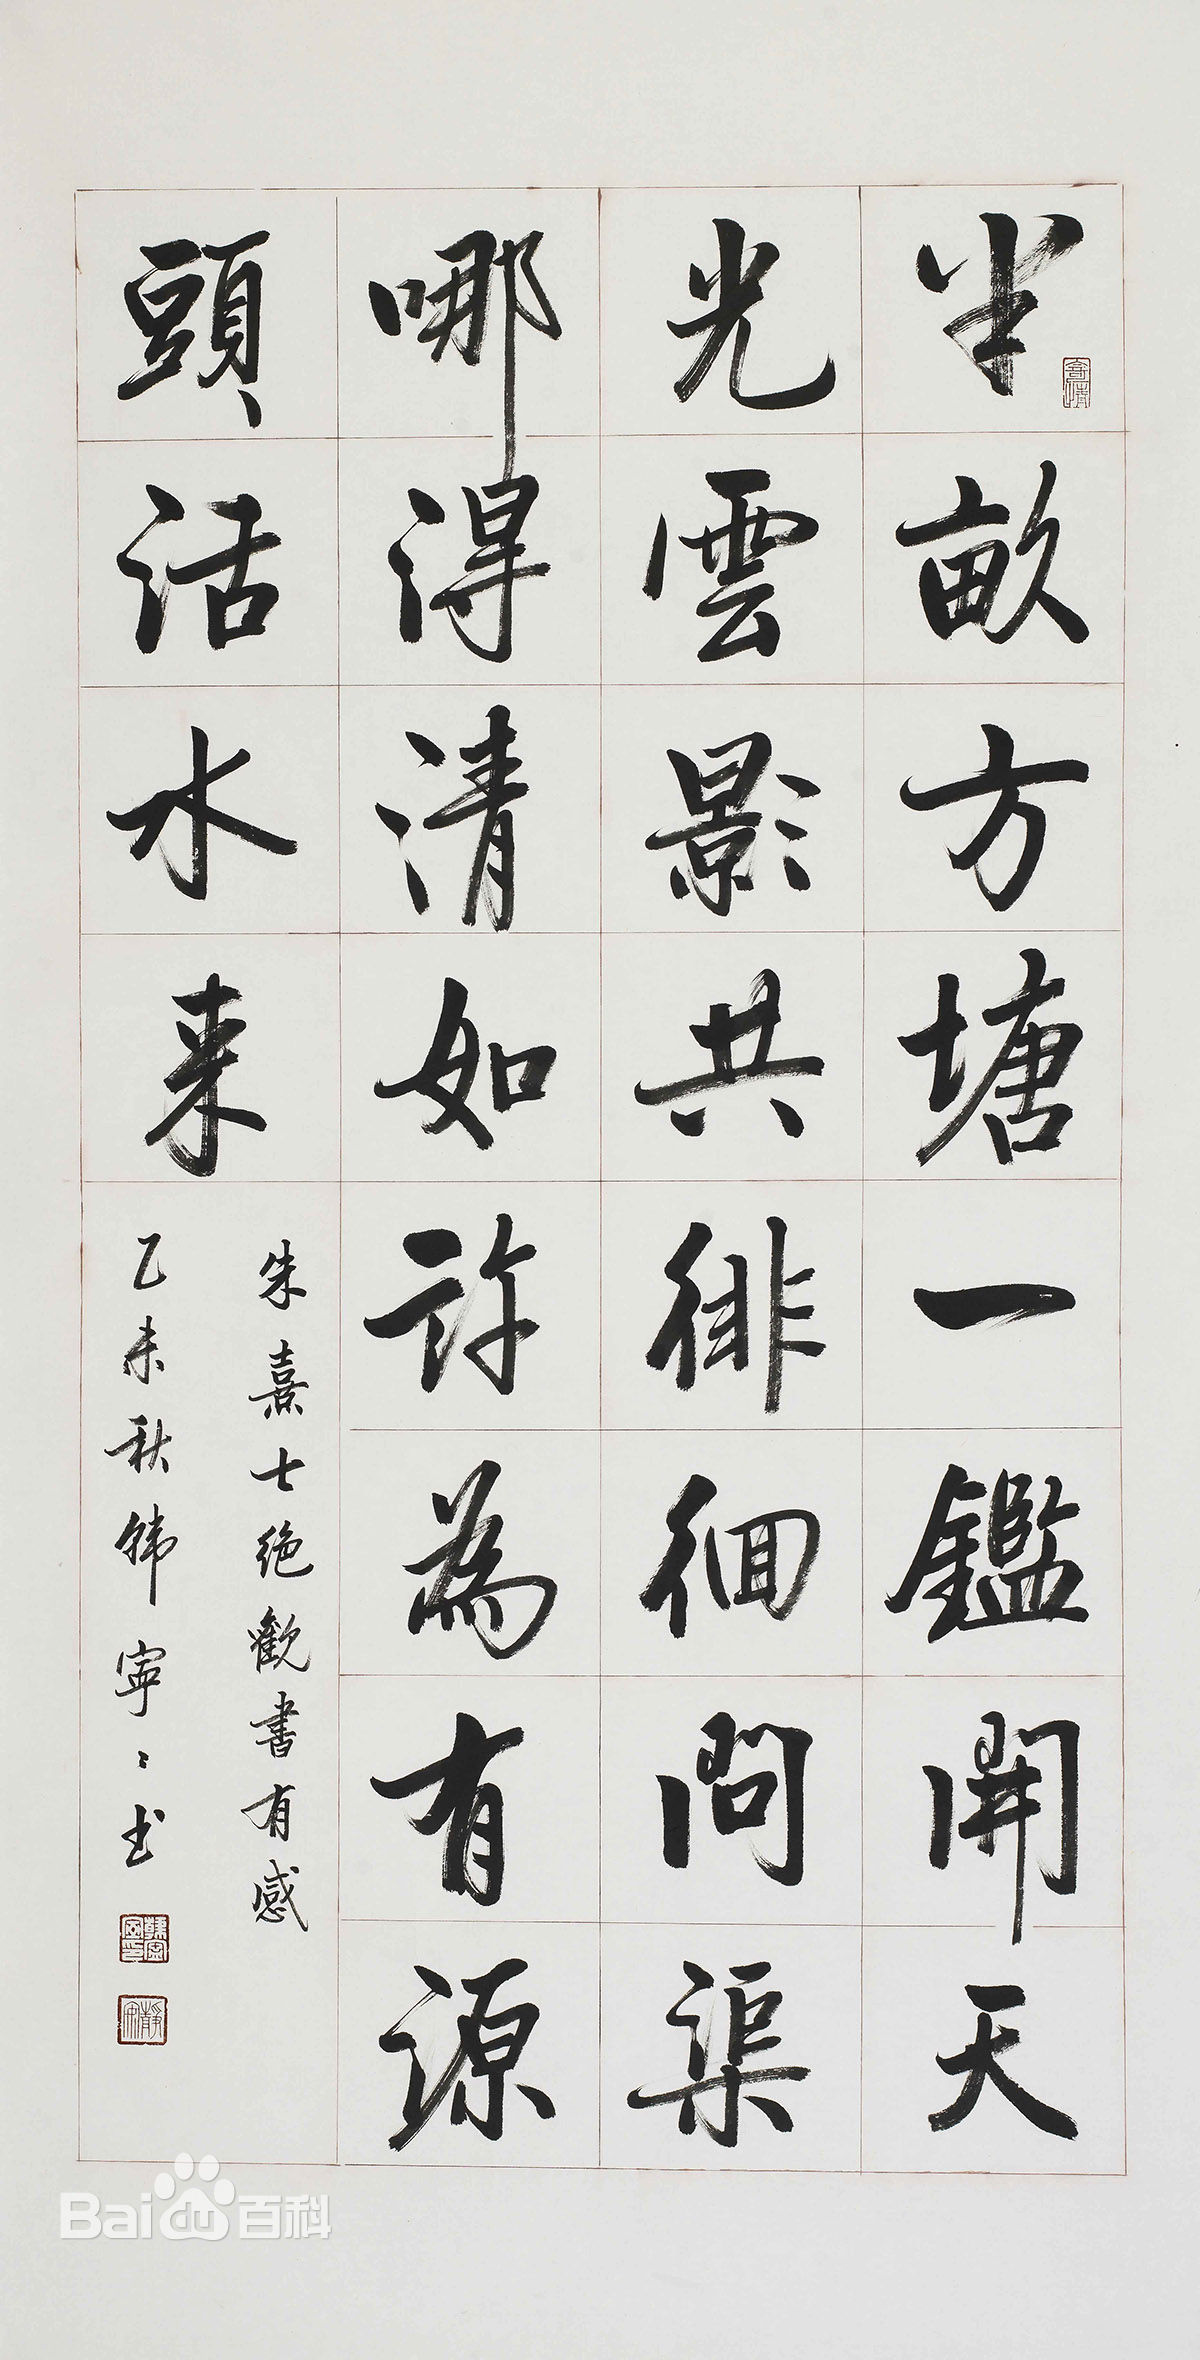 半畝方塘一鑑開天
光雲影共徘徊問渠
哪得清如許為有源
頭活水来
朱熹七绝觀書有感
乙未秋韩寧寧书
Baidu百科